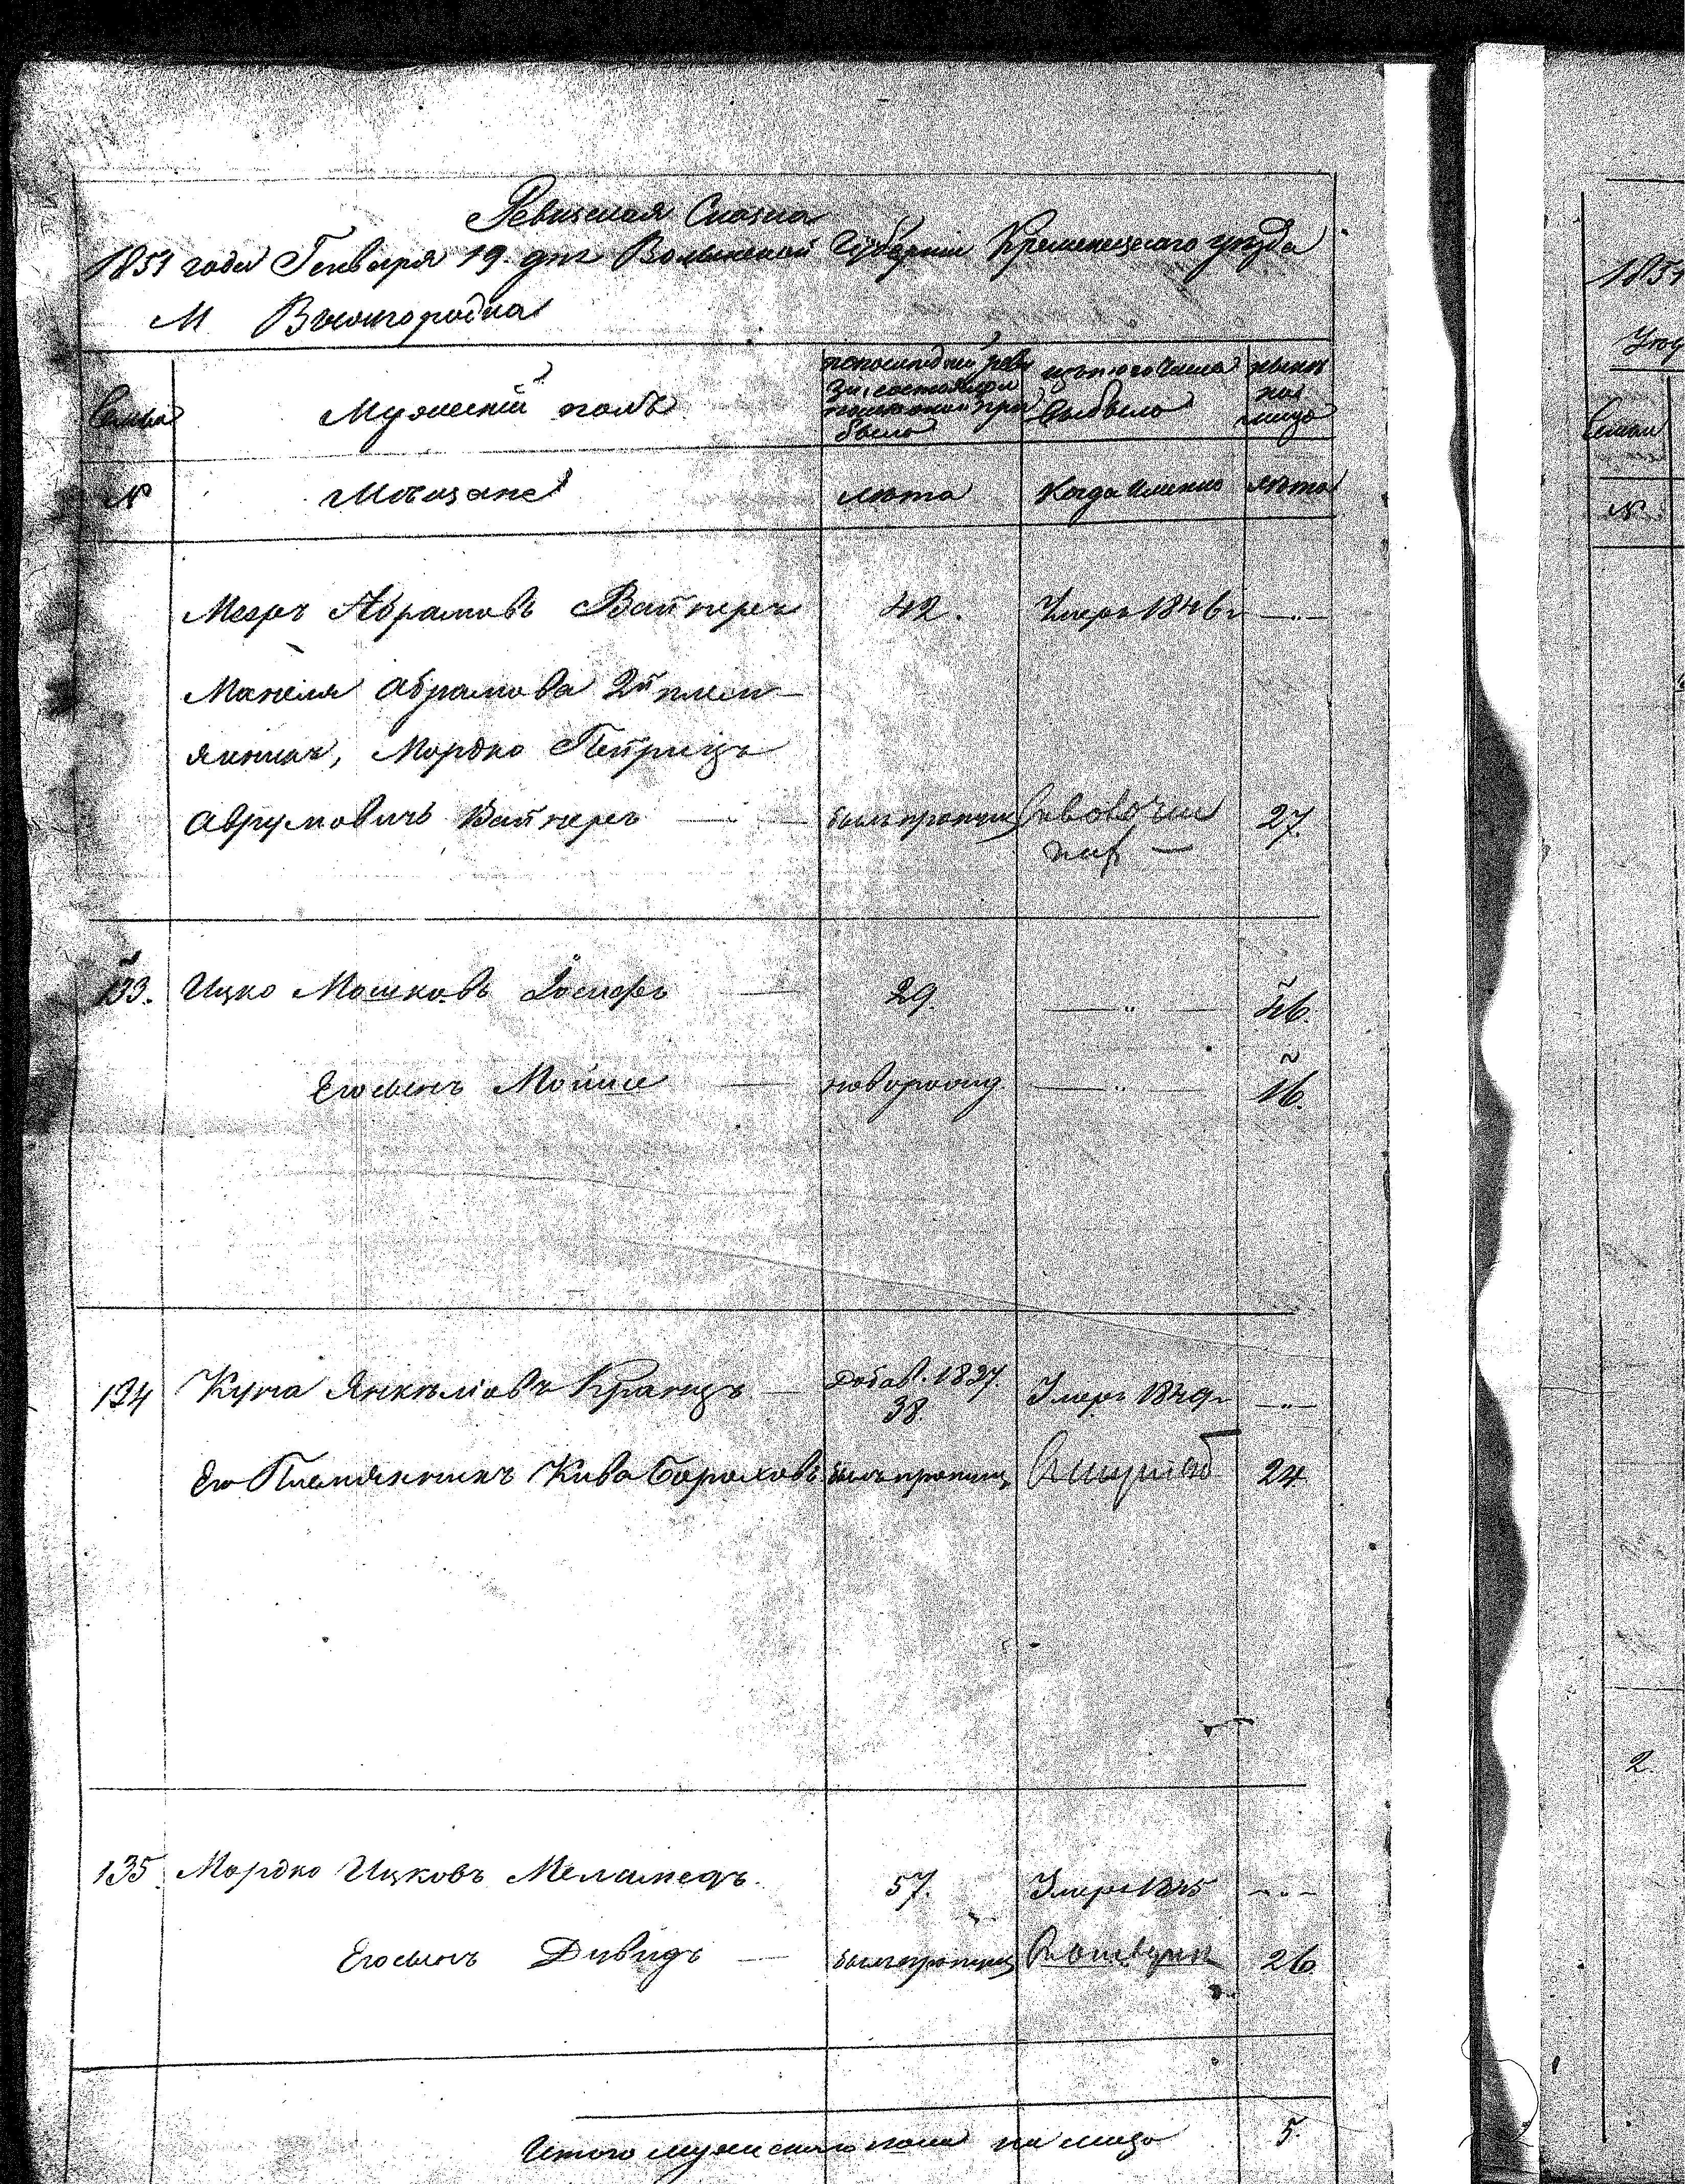 Ревизская Сказка
1851 года Генваря 19 дня Волынской Губернии Кременецкаго уезда
М Вышгородка
Семьи
Мужеский полъ
по последней реви
зіи состояло и
после оной при
было
изъ того числа
выбыло
ныне
на
лицо
№
Мещане
лета
Когда именно
лета
Меер Абрамовъ Вайнеръ 42. Умеръ 1846 г —„—
Абрамова 2й плем
янникъ, Мордко
Аврумовичъ Вайнеръ былъ пропущ 27.
133. Ицко Мошковъ 29. —„— 46.
Его сынъ Мошко новорожд —„— 16.
134 Янкелiовъ Кранцъ Добав. 1837. 38. Умеръ 1849 г —„—
Его Племянникъ Кива Бороховъ былъ пропущ 24
135. Мордко Ицковъ Меламедъ. 57. Умеръ 1845 —„—
Его сынъ Дувидъ былъ пропущ 26
Итого мужескаго пола на лицо 5.
1851
Семьи
№
2